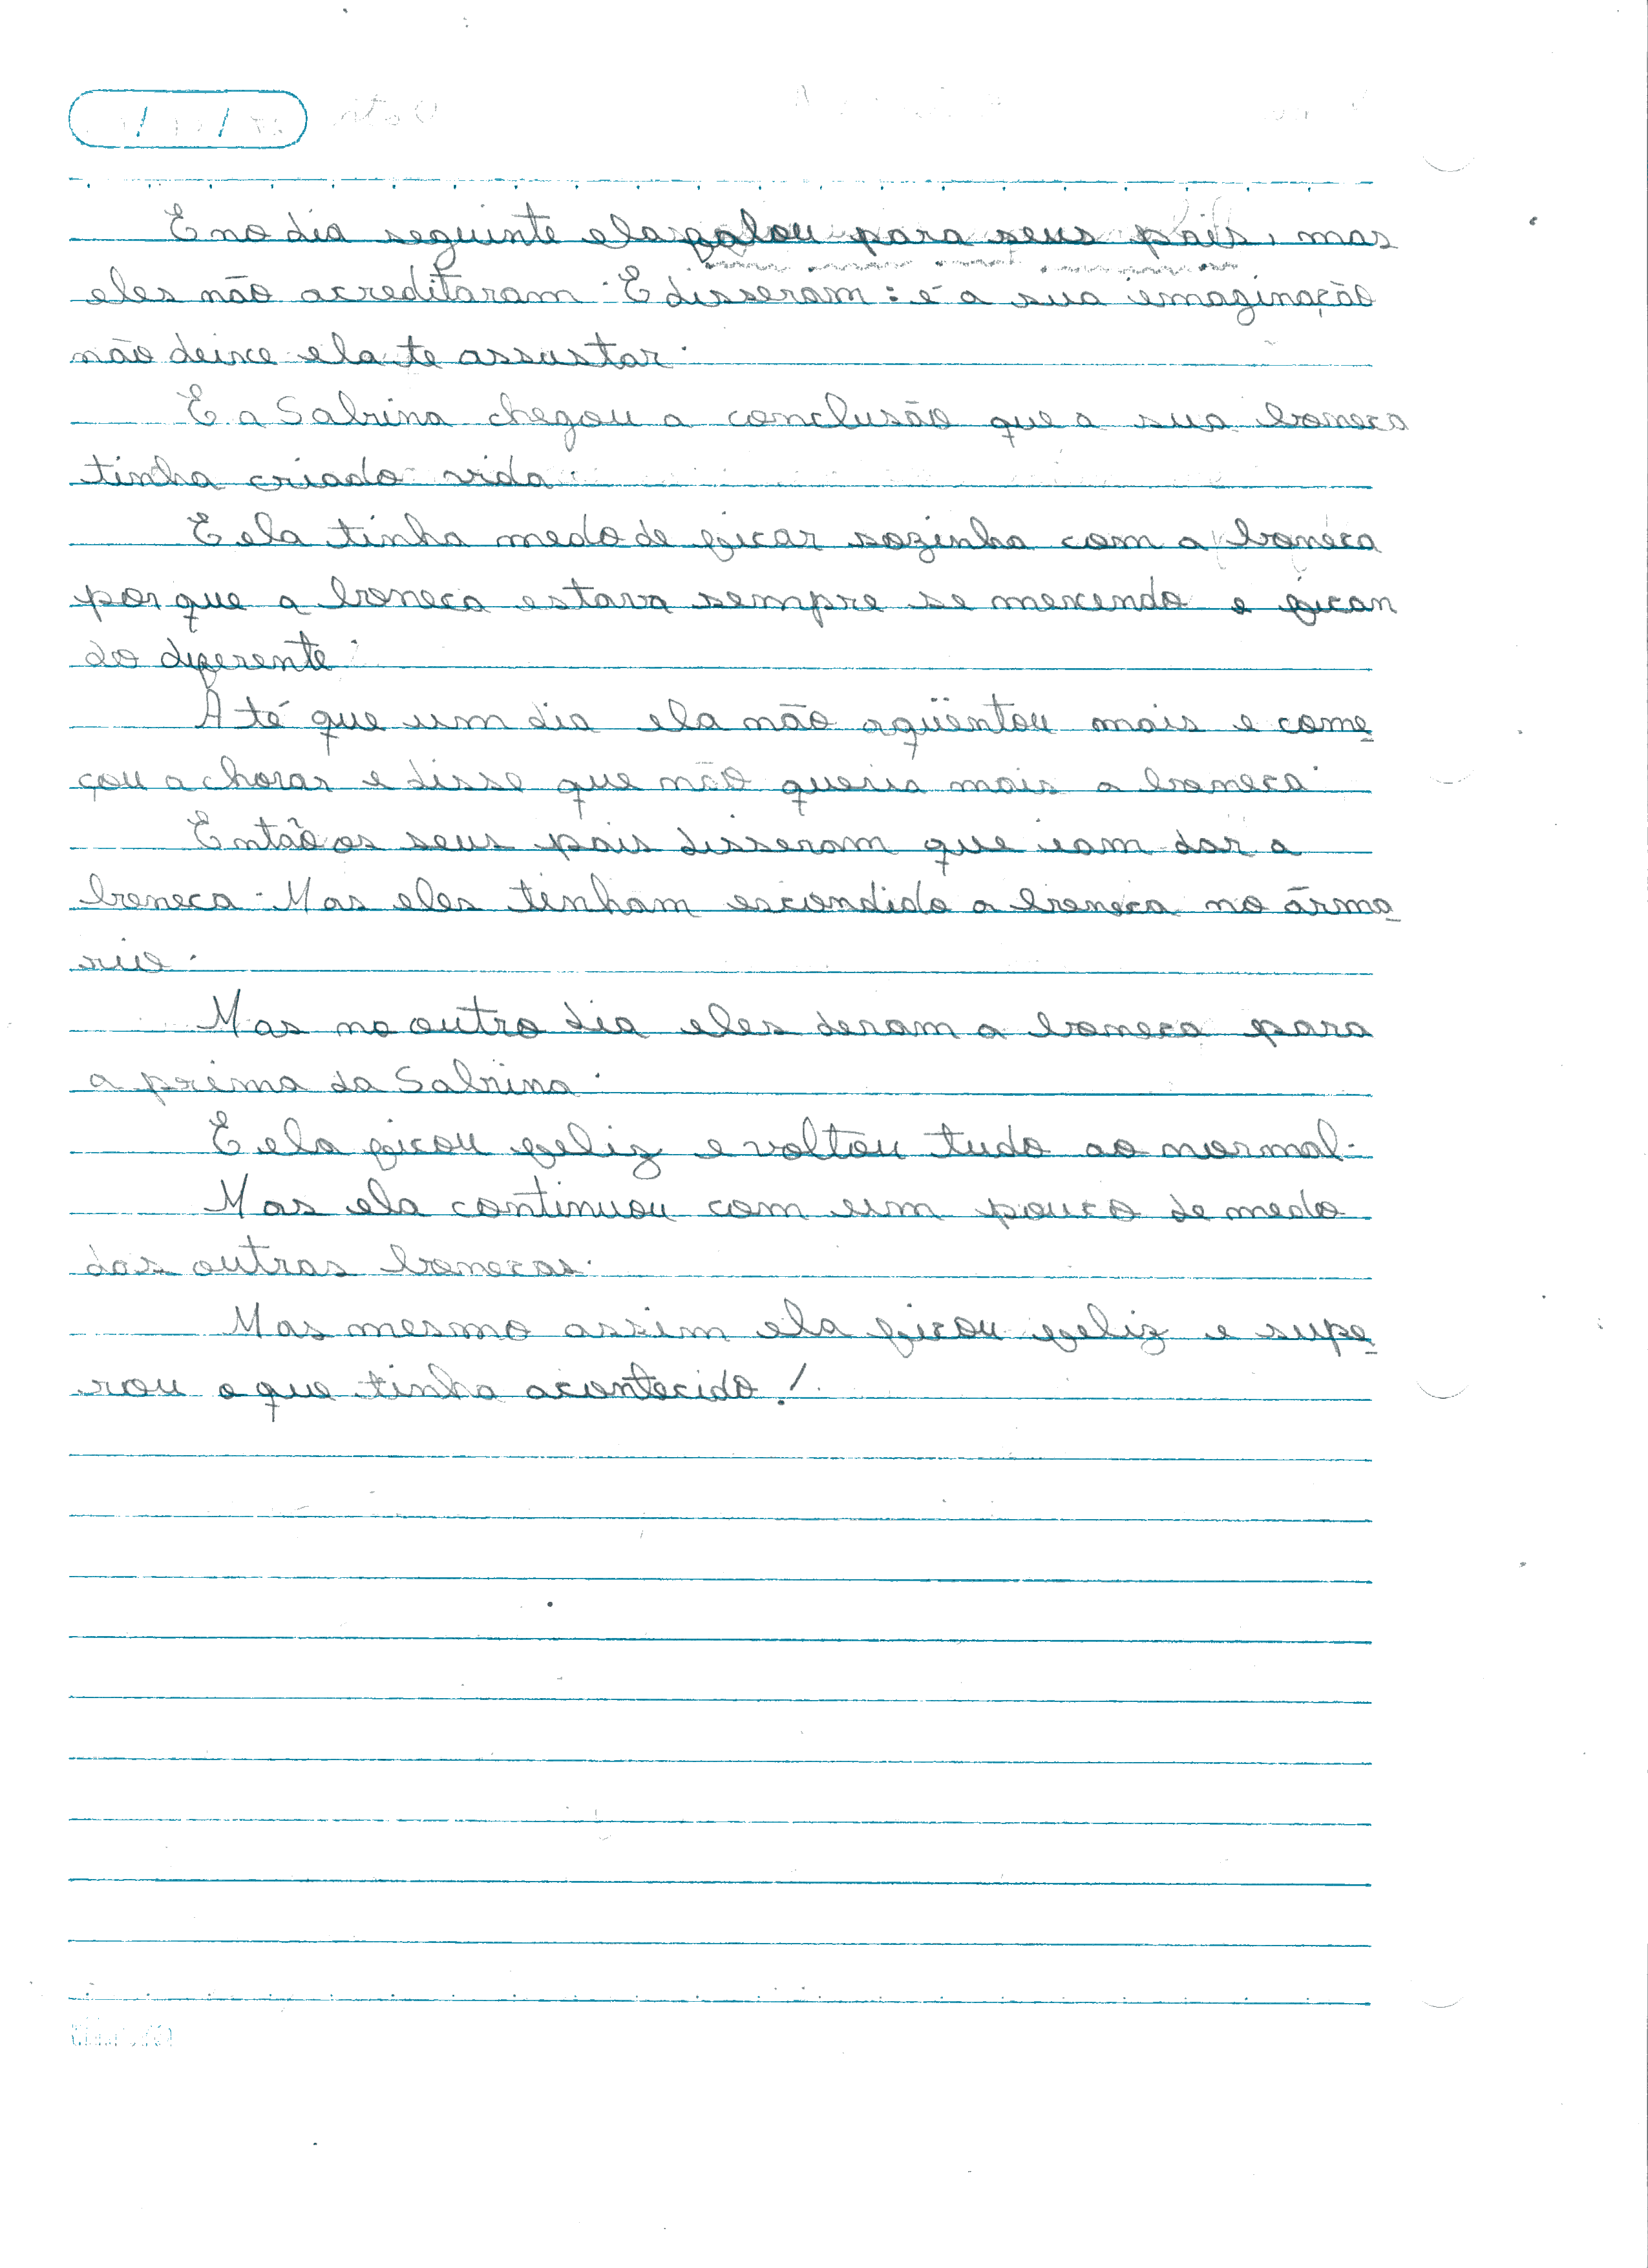 E no dia seguinte ela falou para seus pais, mas
eles não acreditaram. E disseram: é a sua imaginação
não deixe ela te assustar.
E a Sabrina chegou a conclusão que a sua boneca
tinha criado vida.
E ela tinha medo de ficar sozinha com a boneca
porque a boneca estava sempre se mexendo e fican
do diferente.
Até que um dia ela não agüentou mais e come
çou a chorar e disse que não queria mais a boneca.
Então os seus pais disseram que iam dar a
boneca. Mas eles tinham escondido a boneca no árma
rio.
Mas no outro dia eles deram a boneca para
a prima da Sabrina.
E ela ficou feliz e voltou tudo ao normal.
Mas ela continuou com um pouco de medo
das outras bonecas.
Mas mesmo assim ela ficou feliz e supe
rou o que tinha acontecido!